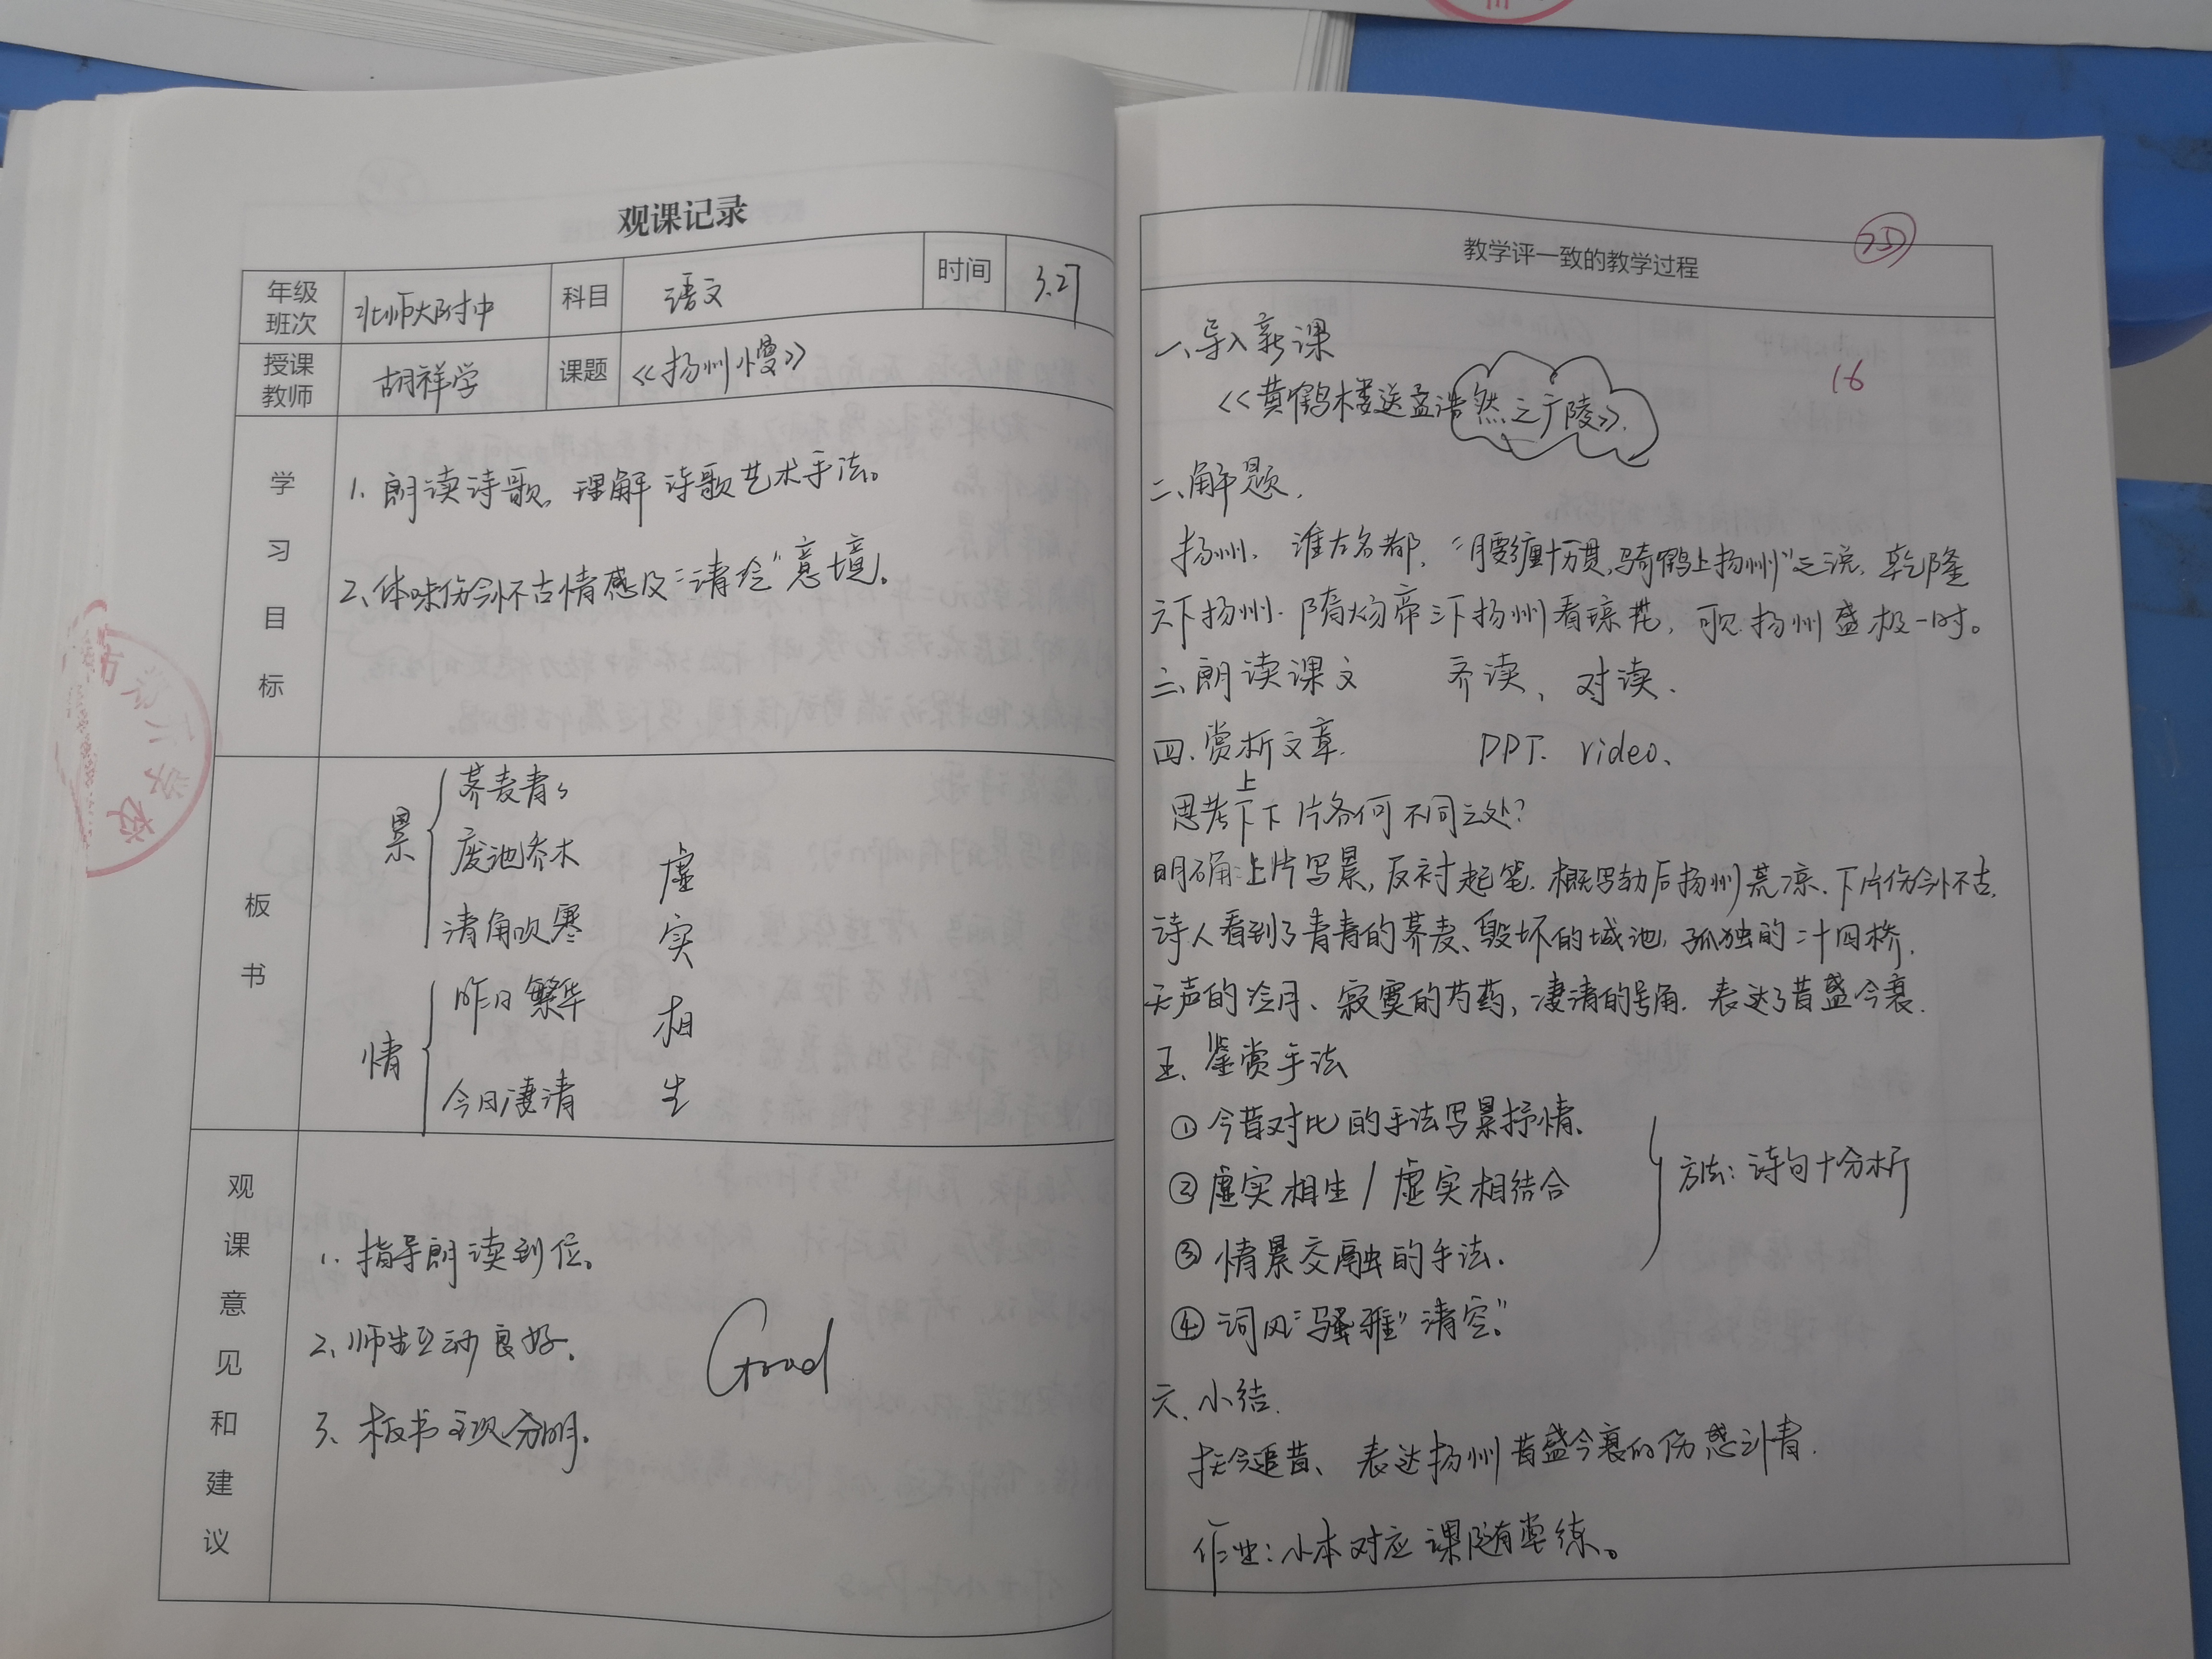 观课记录
年级班次 北师大附中 科目 语文 时间 3.27
授课教师 胡祥学 课题 《扬州慢》
学习目标
1. 朗读诗歌, 理解诗歌艺术手法。
2、体味伤今怀古情感及“清空”意境。
板书
景
荞麦青々
废池乔木
清角吹寒
情
昨日繁华
今日凄清
虚实相生
观课意见和建议
1. 指导朗读到位。
2、师生互动良好.
3、板书主次分明.
Good
教学评一致的教学过程
25
16
一、导入新课
《黄鹤楼送孟浩然之广陵》.
二、解题.
扬州. 淮左名都, “腰缠十万贯,骑鹤上扬州”之说. 乾隆
六下扬州. 隋炀帝三下扬州看琼花, 可见扬州盛极一时。
三、朗读课文 齐读、对读.
四、赏析文章. PPT. video、
思考上下片各何不同之处?
明确:上片写景, 反衬起笔. 概写劫后扬州荒凉. 下片伤今怀古.
诗人看到了青青的荞麦、毁坏的城池, 孤独的二十四桥.
无声的冷月、寂寞的芍药, 凄清的号角. 表达了昔盛今衰.
五、鉴赏手法
①今昔对比的手法写景抒情.
②虚实相生/虚实相结合
③情景交融的手法.
④词风“骚雅”“清空”
方法: 诗句+分析
六、小结.
抚今追昔、表达扬州昔盛今衰的伤感之情.
作业: 小本对应课随堂练。